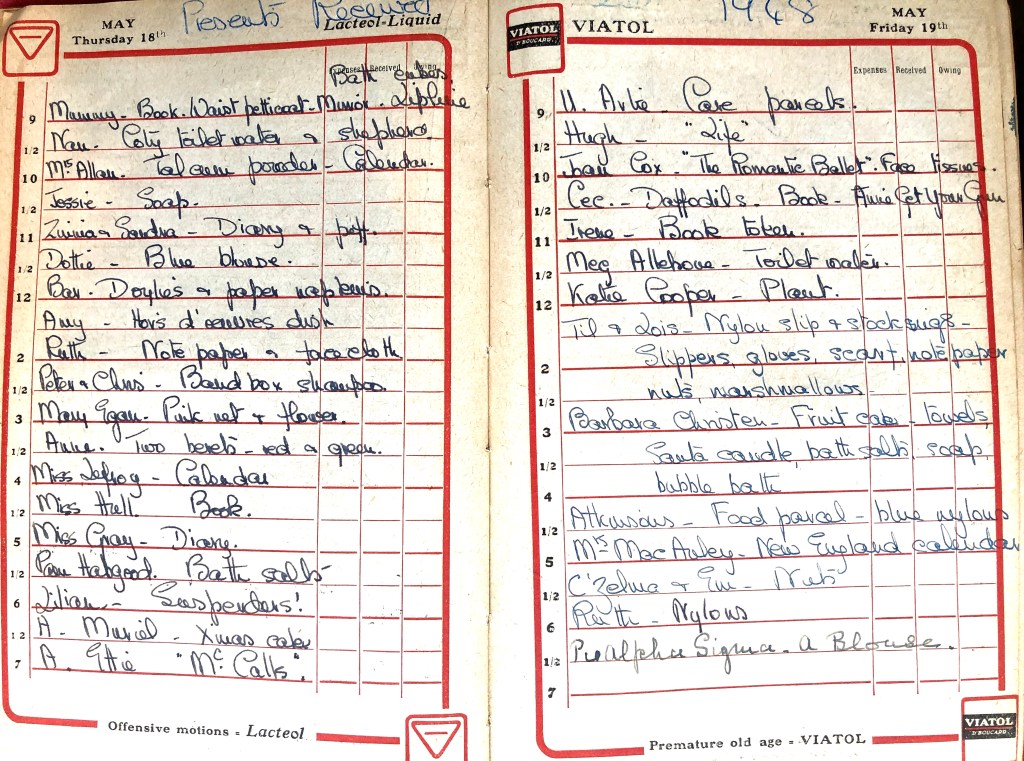 Presents Received
MAY
Thursday 18th
Lacteol-Liquid
Expenses Received Owing
Bath cubes.
9 Mummy - Book. Waist petticoat - Mirror. Liphue
1/2 Nan. Coty toilet water & shepherd
10 Mrs Allan. Talcum powder - Calendar.
1/2 Jessie - Soap.
11 Zinnia & Sandra - Diary & puff.
1/2 Dottie - Blue blouse.
12 Bar. Doylies & paper napkins.
Amy - Hors d'oeuvres dish
2 Ruth - Note paper & facecloth
1/2 Peter & Chris - Bandbox shampoo.
3 Mary Egan - Pink net & flower.
1/2 Anne. Two berets - red & green.
4 Miss - Calendar
1/2 Miss Hull Book.
5 Miss Gray - Diary.
1/2 Pam Habgood. Bath salts
6 Lilian - Suspenders!
1/2 A. Muriel - Xmas cake
7 A. Ettie "McCalls".
Offensive motions = Lacteol
1948
VIATOL
D'BOUCARD
VIATOL
MAY
Friday 19th
Expenses Received Owing
9 U. Artie - Care parcels.
1/2 Hugh - "Life"
10 Joan Cox - "The Romantic Ballet". Face tissues.
1/2 Cec. - Daffodils. Book - Annie Get Your Gun
11 Irene - Book token.
1/2 Meg - Toilet water.
12 Katie Cooper - Plant.
Til & Lois - Nylon slip & stockings -
2 Slippers, gloves, scarf, note paper
1/2 nuts, marshmallows
3 Barbara Christen - Fruit cake - towels,
1/2 Santa candle, bath salts, soap,
4 bubble bath
1/2 Atkinsons - Food parcel - blue nylons
5 Mrs MacAuley - New England calendar
1/2 C'Zelma & Em - Nuts
6 Ruth - Nylons
1/2 Pi Alpha Sigma - a Blouse.
7
Premature old age = VIATOL
VIATOL
D'BOUCARD